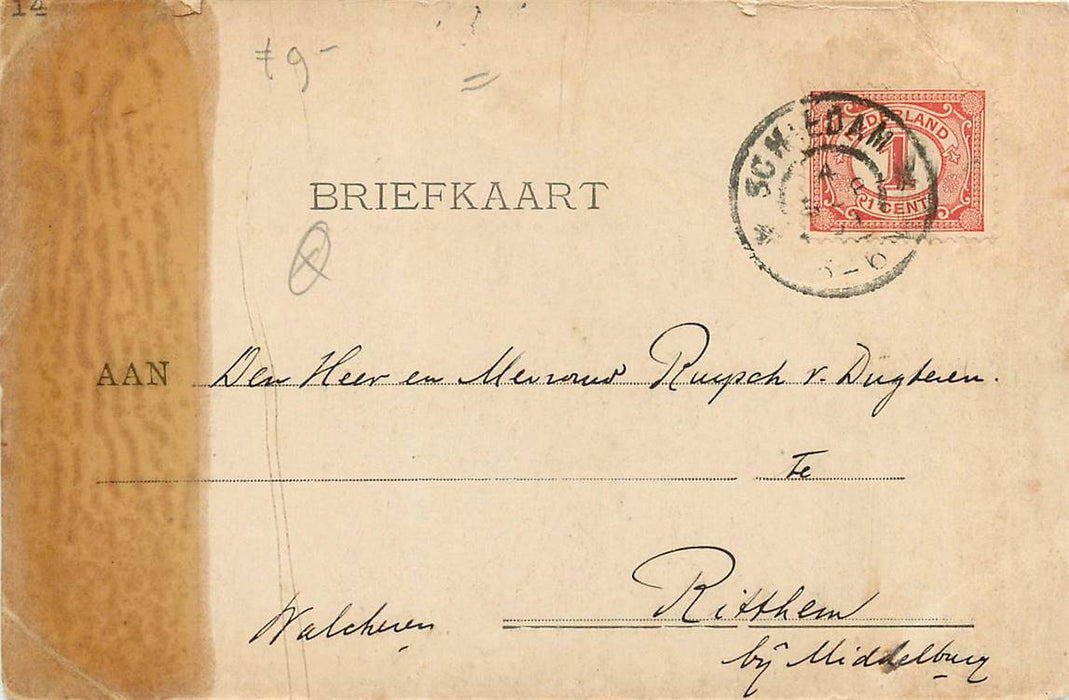 14
79-
SCHIEDAM
NEDERLAND
1
1 CENT
BRIEFKAART
AAN Den Heer en Mevrouw Ruysch v. Dugteren.
Te
Ritthem
Walcheren
bij Middelburg